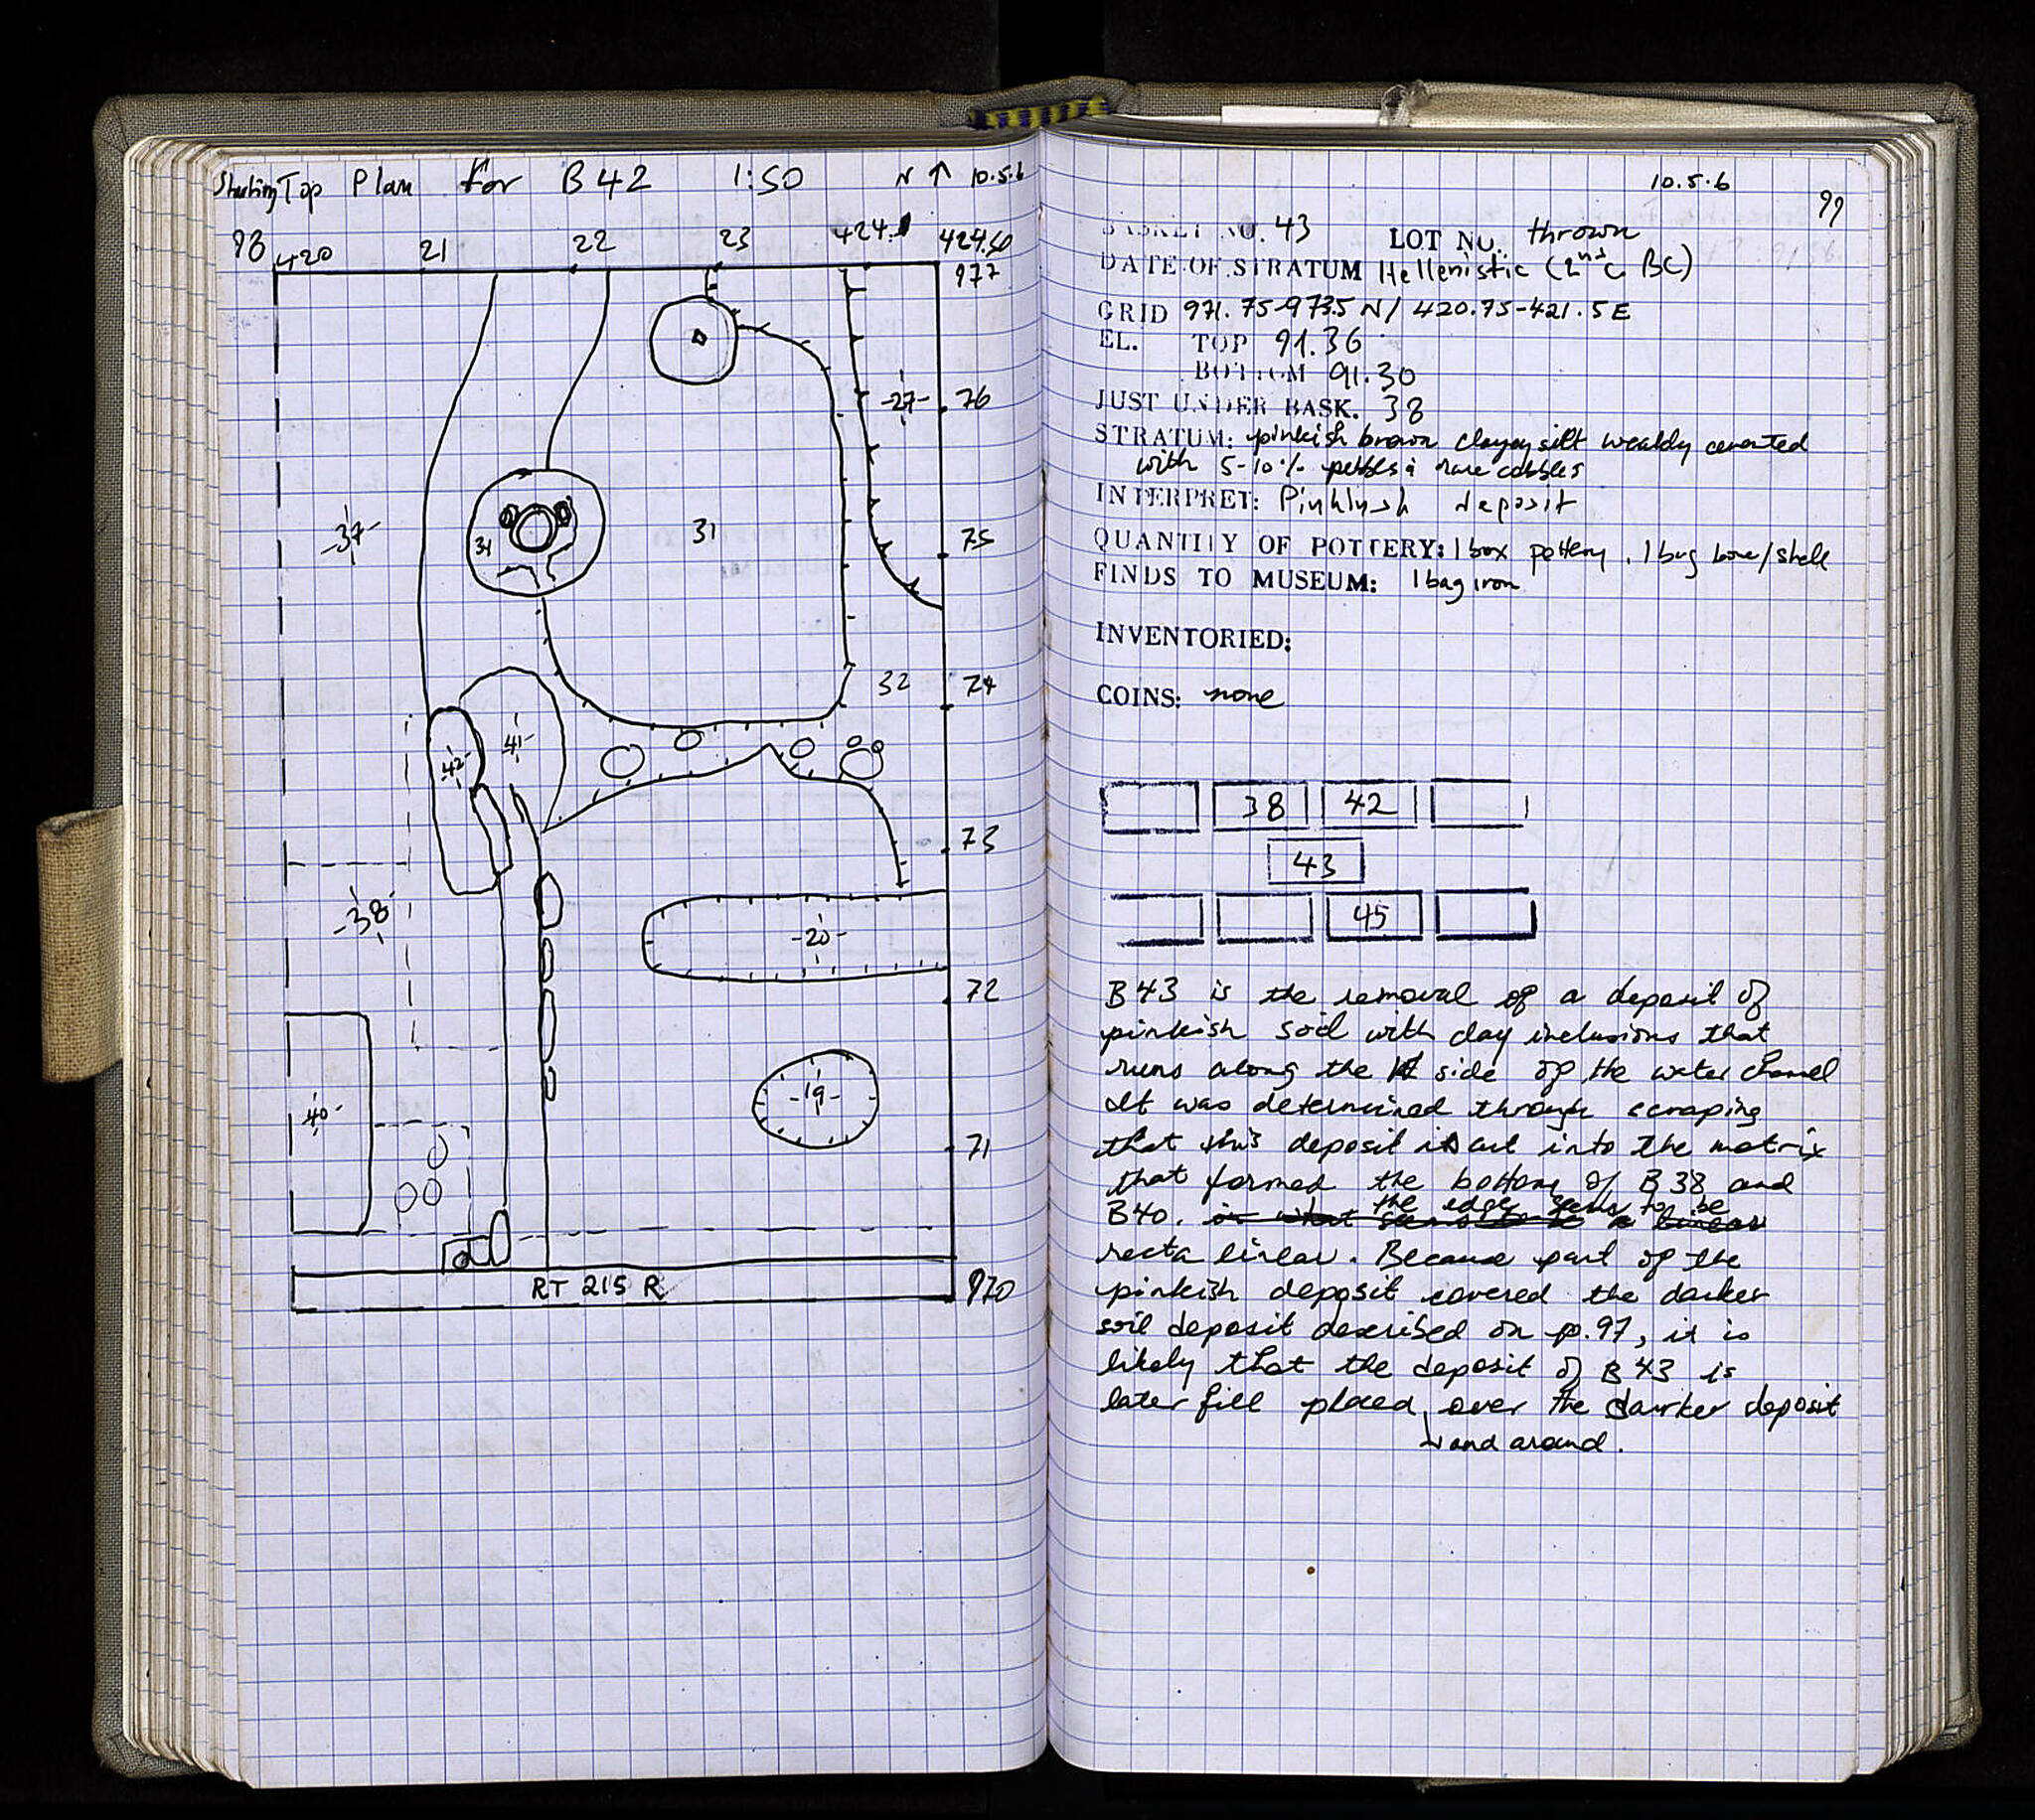 Starting Top Plan for B42 1:50 N ↑ 10.5.6
98
420 21 22 23 424. 424.60
977
-27- 76
-37- 31 31 75
32 74
-42- -41-
73
-38- -20-
72
-40- -19- 71
RT 215 R 970
10.5.6
99
BASKET NO. 43 LOT NO. thrown
DATE OF STRATUM Hellenistic (2nd c BC)
GRID 971.75-973.5 N / 420.75-421.5 E
EL. TOP 91.36
BOTTOM 91.30
JUST UNDER BASK. 38
STRATUM: pinkish brown clayey silt weakly cemented
with 5-10% pebbles & rare cobbles
INTERPRET: Pinkish deposit
QUANTITY OF POTTERY: 1 box pottery, 1 bag bone/shell
FINDS TO MUSEUM: 1 bag iron
INVENTORIED:
COINS: none
38 42
43
45
B43 is the removal of a deposit of
pinkish soil with clay inclusions that
runs along the side of the water channel
It was determined through scraping
that this deposit is cut into the matrix
that formed the bottom of B38 and
B40. the edge seems to be
recta linear. Because part of the
pinkish deposit covered the darker
soil deposit described on p.97, it is
likely that the deposit of B43 is
later fill placed over the darker deposit
and around.